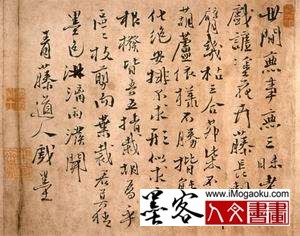 世間無事無三昧老
戲謔塗花卉藤長刺
臂幾枯三合茅柴
葫蘆依樣不勝揩能
化絕安排不求形似求
根撥皆吾五指栽胡為乎
區區枝剪而葉裁君莫猜
墨色淋漓雨撥開
青藤道人戲墨
www.iMogaoku.com
墨客
人文書畫